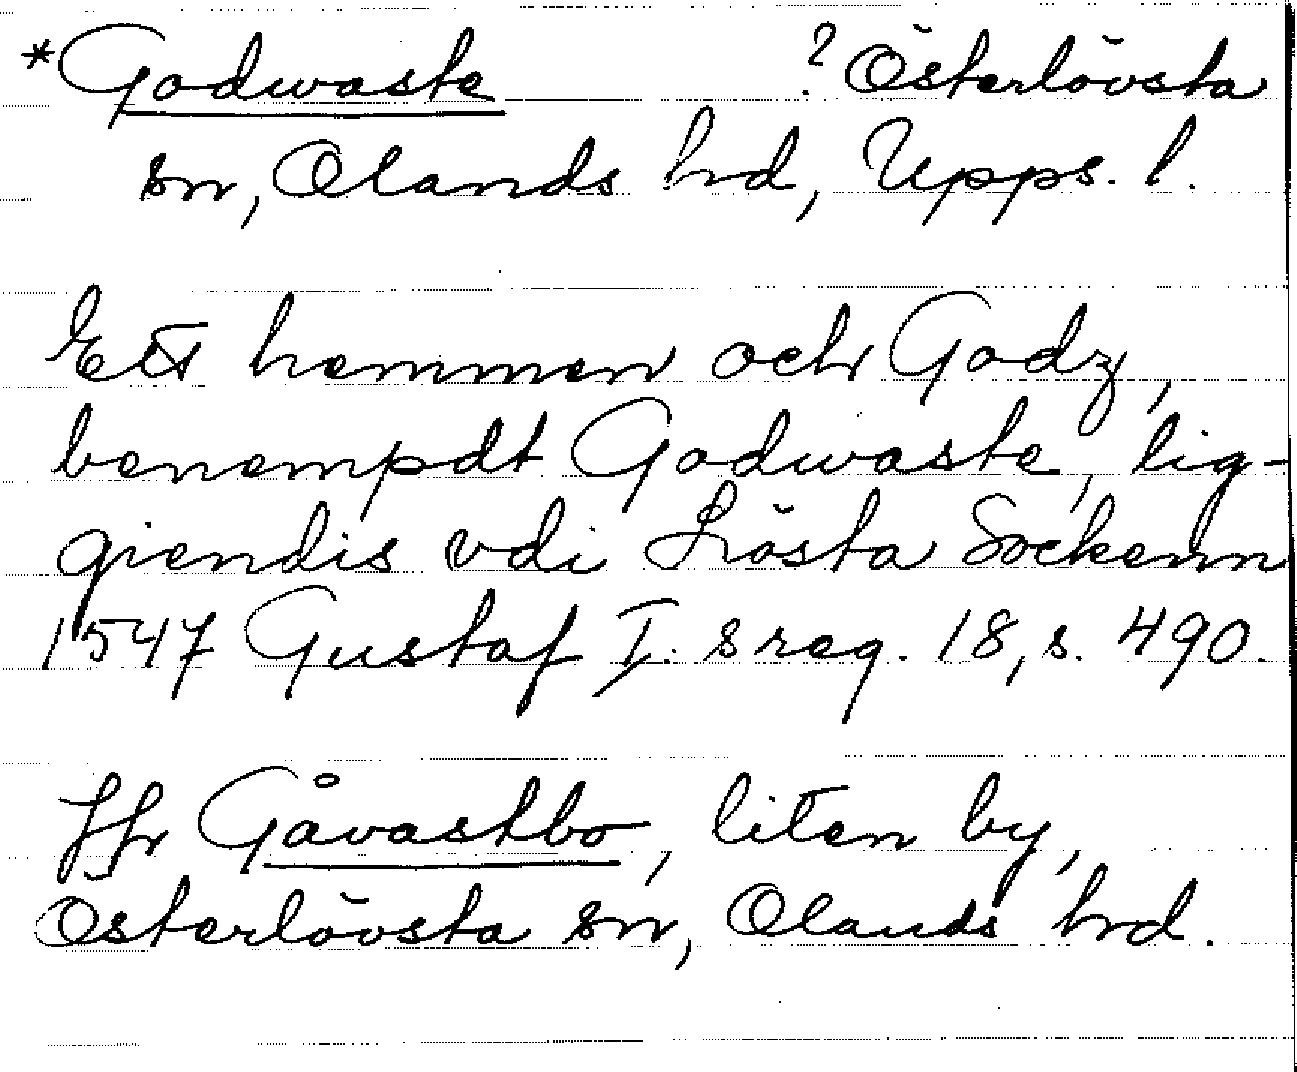 *Godwaste ? Österlövsta
sn, Olands hrd, Upps. l.
Ett hemmen och Godz,
benempdt Godwaste, lig-
giendis vdi Lösta Sockenn
1547 Gustaf I. s reg. 18, s. 490.
Jfr Gåvastbo, liten by,
Österlövsta sn, Olands hrd.